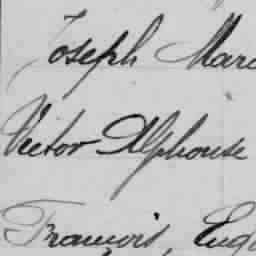 Joseph Marc
Victor Alphonse
François, Eug